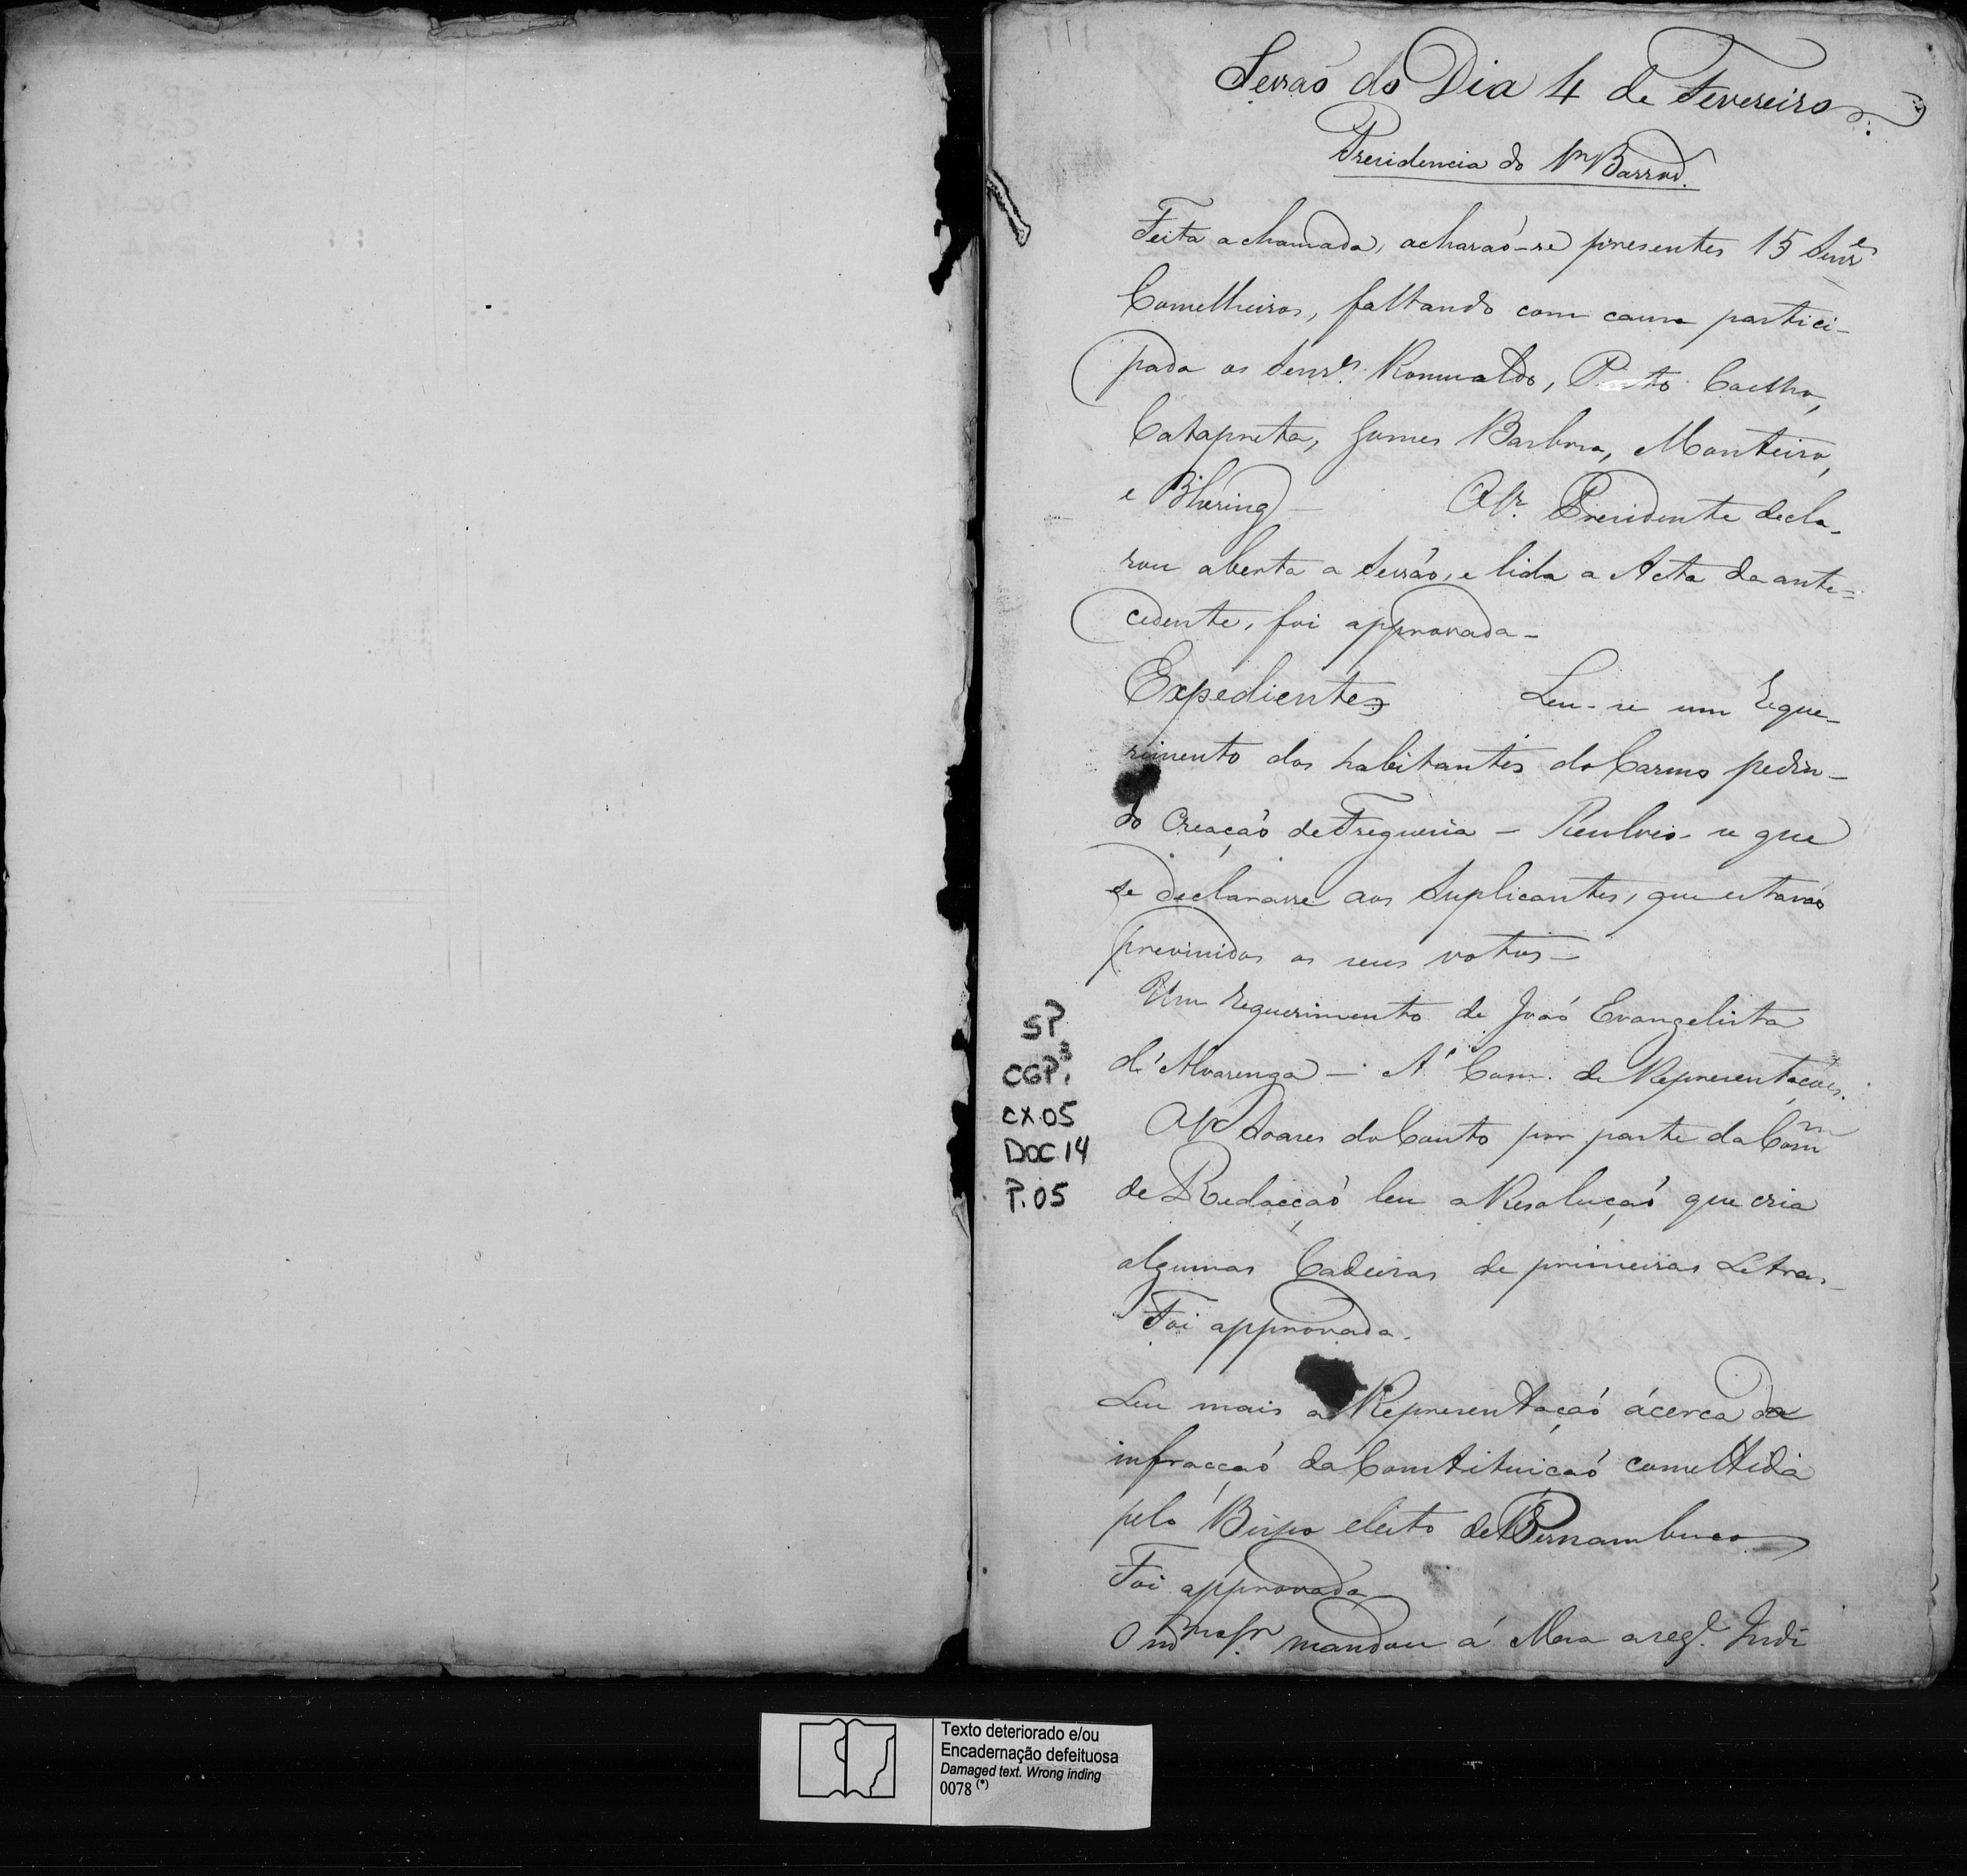 Sessaõ do Dia 4 de Fevereiro
Presidencia do Sr Barros.
Feita a chamada, acharaõ-se presentes 15 Senres
Conselheiros, faltando com causa partici-
pada os Senres. Romualdo, Pinto Coelho,
Catapreta, Gomes Barbosa, Monteiro,
e Bhering - O Sr. Presidente decla-
rou aberta a Sessaõ, e lida a Acta da ante=
cedente, foi approvada -
Expediente Leu-se um Reque-
rimento dos habitantes do Carmo pedin-
do Creaçaõ de Freguesia - Resolveo-se que
se declarasse aos Suplicantes, que estavaõ
previnidos os seus votos -
Um Requerimento de Joaõ Evangelista
d'Alvarenga - A' Com. de Representações.
O Sr Soares do Couto por parte da Comm
de Redacçaõ leu a Resoluçaõ que cria
algumas Cadeiras de primeiras Letras -
Foi approvada.
Leu mais a Representaçaõ ácerca da
infracçaõ da Constituiçaõ comettida
pelo Bispo eleito de Pernambuco
Foi approvada
O mmo Sr. mandou á Mesa a segte. Indi
SP
CGP,3
CX.05
DOC 14
P.05
Texto deteriorado e/ou
Encadernação defeituosa
Damaged text. Wrong inding
0078 (*)